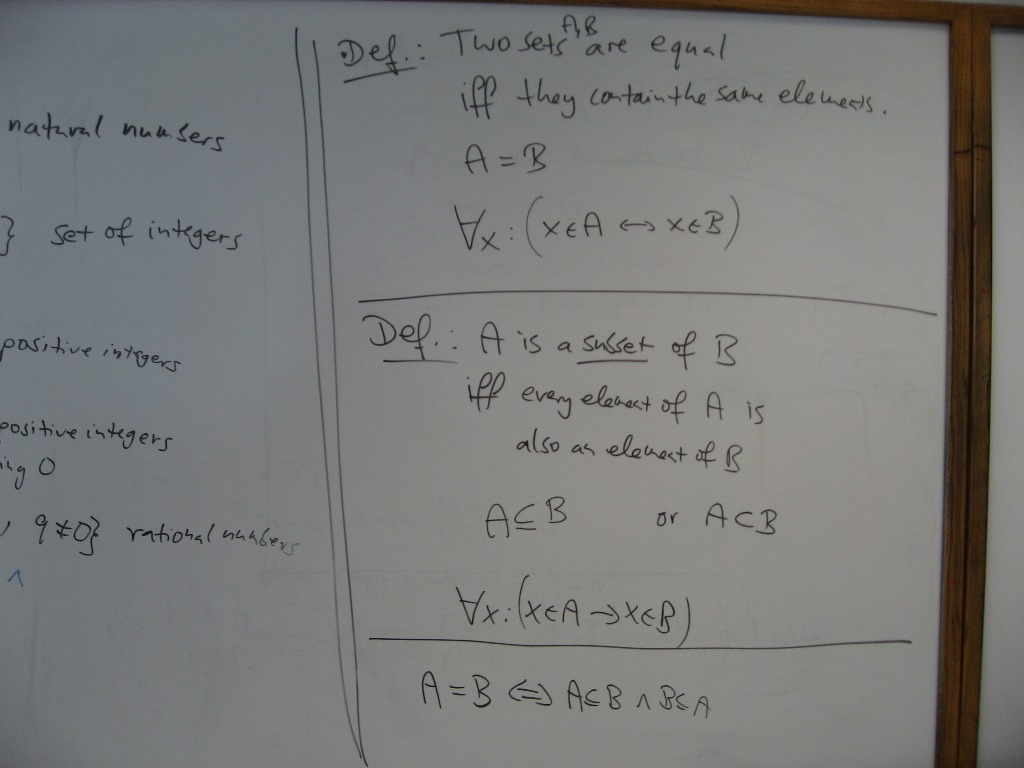 natural numbers
} set of integers
positive integers
positive integers
ing 0
, q ≠ 0} rational numbers
^
Def.: Two sets A, B are equal
iff they contain the same elements.
A = B
∀x: (x ∈ A ↔ x ∈ B)
Def.: A is a subset of B
iff every element of A is
also an element of B
A ⊆ B or A ⊂ B
∀x: (x ∈ A → x ∈ B)
A = B ⇔ A ⊆ B ∧ B ⊆ A